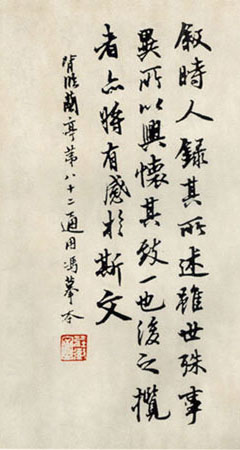 叙時人錄其所述雖世殊事
異所以興懷其致一也後之攬
者亦將有感於斯文
背臨蘭亭第八十二通用馮摹本